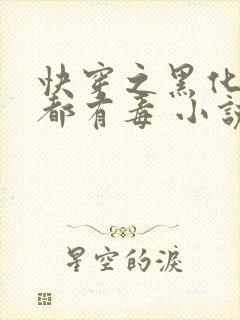 快穿之黑化
都有毒 小説
星空的淚